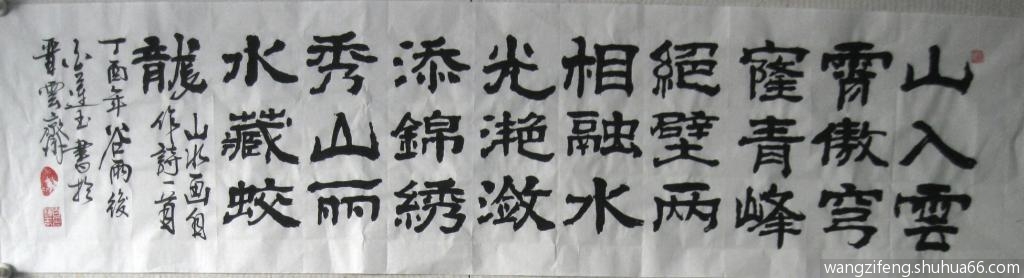 山入雲
霄傲穹
窿青峰
絕壁兩
相融水
光滟瀲
添錦綉
秀山丽
水藏蛟
龍
山水画自
作詩一首
丁酉年谷雨後
書於
雲齋
wangzifeng.shuhua66.com